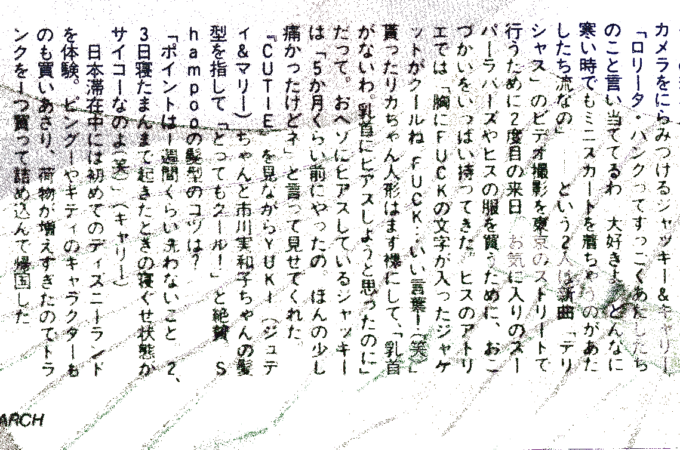 カメラをにらみつけるジャッキー&キャリー
「ロリータ・パンクってすっごくあたしたち
のこと言い当ててるわ 大好きよ どんなに
寒い時でもミニスカートを着ちゃうのがあた
したち流なの」 という2人は新曲「デリ
シャス」のビデオ撮影を東京のストリートで
行うために2度目の来日 お気に入りのスー
パーラバーズやヒスの服を買うために、おこ
づかいをいっぱい持ってきた。ヒスのアトリ
エでは「胸にFUCKの文字が入ったジャケ
ットがクールね FUCK…いい言葉!(笑)」
貰ったリカちゃん人形はまず裸にして、「乳首
がないわ。乳首にピアスしようと思ったのに」
だって。おヘソにピアスしているジャッキー
は「5か月くらい前にやったの。ほんの少し
痛かったけどネ」と言って見せてくれた
『CUTIE』を見ながらYUKI(ジュデ
ィ&マリー)ちゃんと市川実和子ちゃんの髪
型を指して「とってもクール!」と絶賛 S
hampooの髪型のコツは?
「ポイントは1週間くらい洗わないこと 2、
3日寝たまんまで起きたときの寝ぐせ状態が
サイコーなのよ(笑)」(キャリー)
日本滞在中には初めてのディズニーランド
を体験。ピングーやキティのキャラクターも
のも買いあさり、荷物が増えすぎたのでトラ
ンクを1つ買って詰め込んで帰国した
ARCH